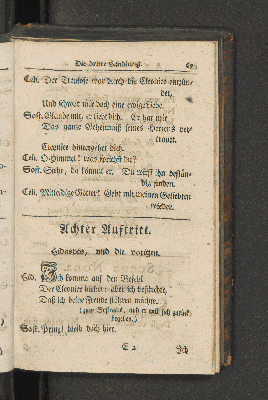 Die dritte Handlung. 67
Celi. Der Treulose war durch die Cleonice entzün-
det,
Und schwört mir doch eine ewige Liebe.
Sost. Glaube mir, er liebt dich. Er hat mir
Das ganze Geheimniß seines Herzens ver-
trauet.
Cleonice hintergehet dich.
Celi. O Himmel! was sprichst du?
Sost. Siehe, da kömmt er. Du wirst ihn bestän-
dig finden.
Celi. Mitleidige Götter! Gebt mir meinen Geliebten
wieder.
Achter Auftritt.
Hidaspes, und die vorigen.
Hid. Ich komme auf den Befehl
Der Cleonice hieher: aber ich befürchte,
Daß ich deine Freude stöhren möchte.
(zum Sostrates, und er will sich zurück
begeben.)
Sost. Prinz! bleib doch hier.
E 2 Ich